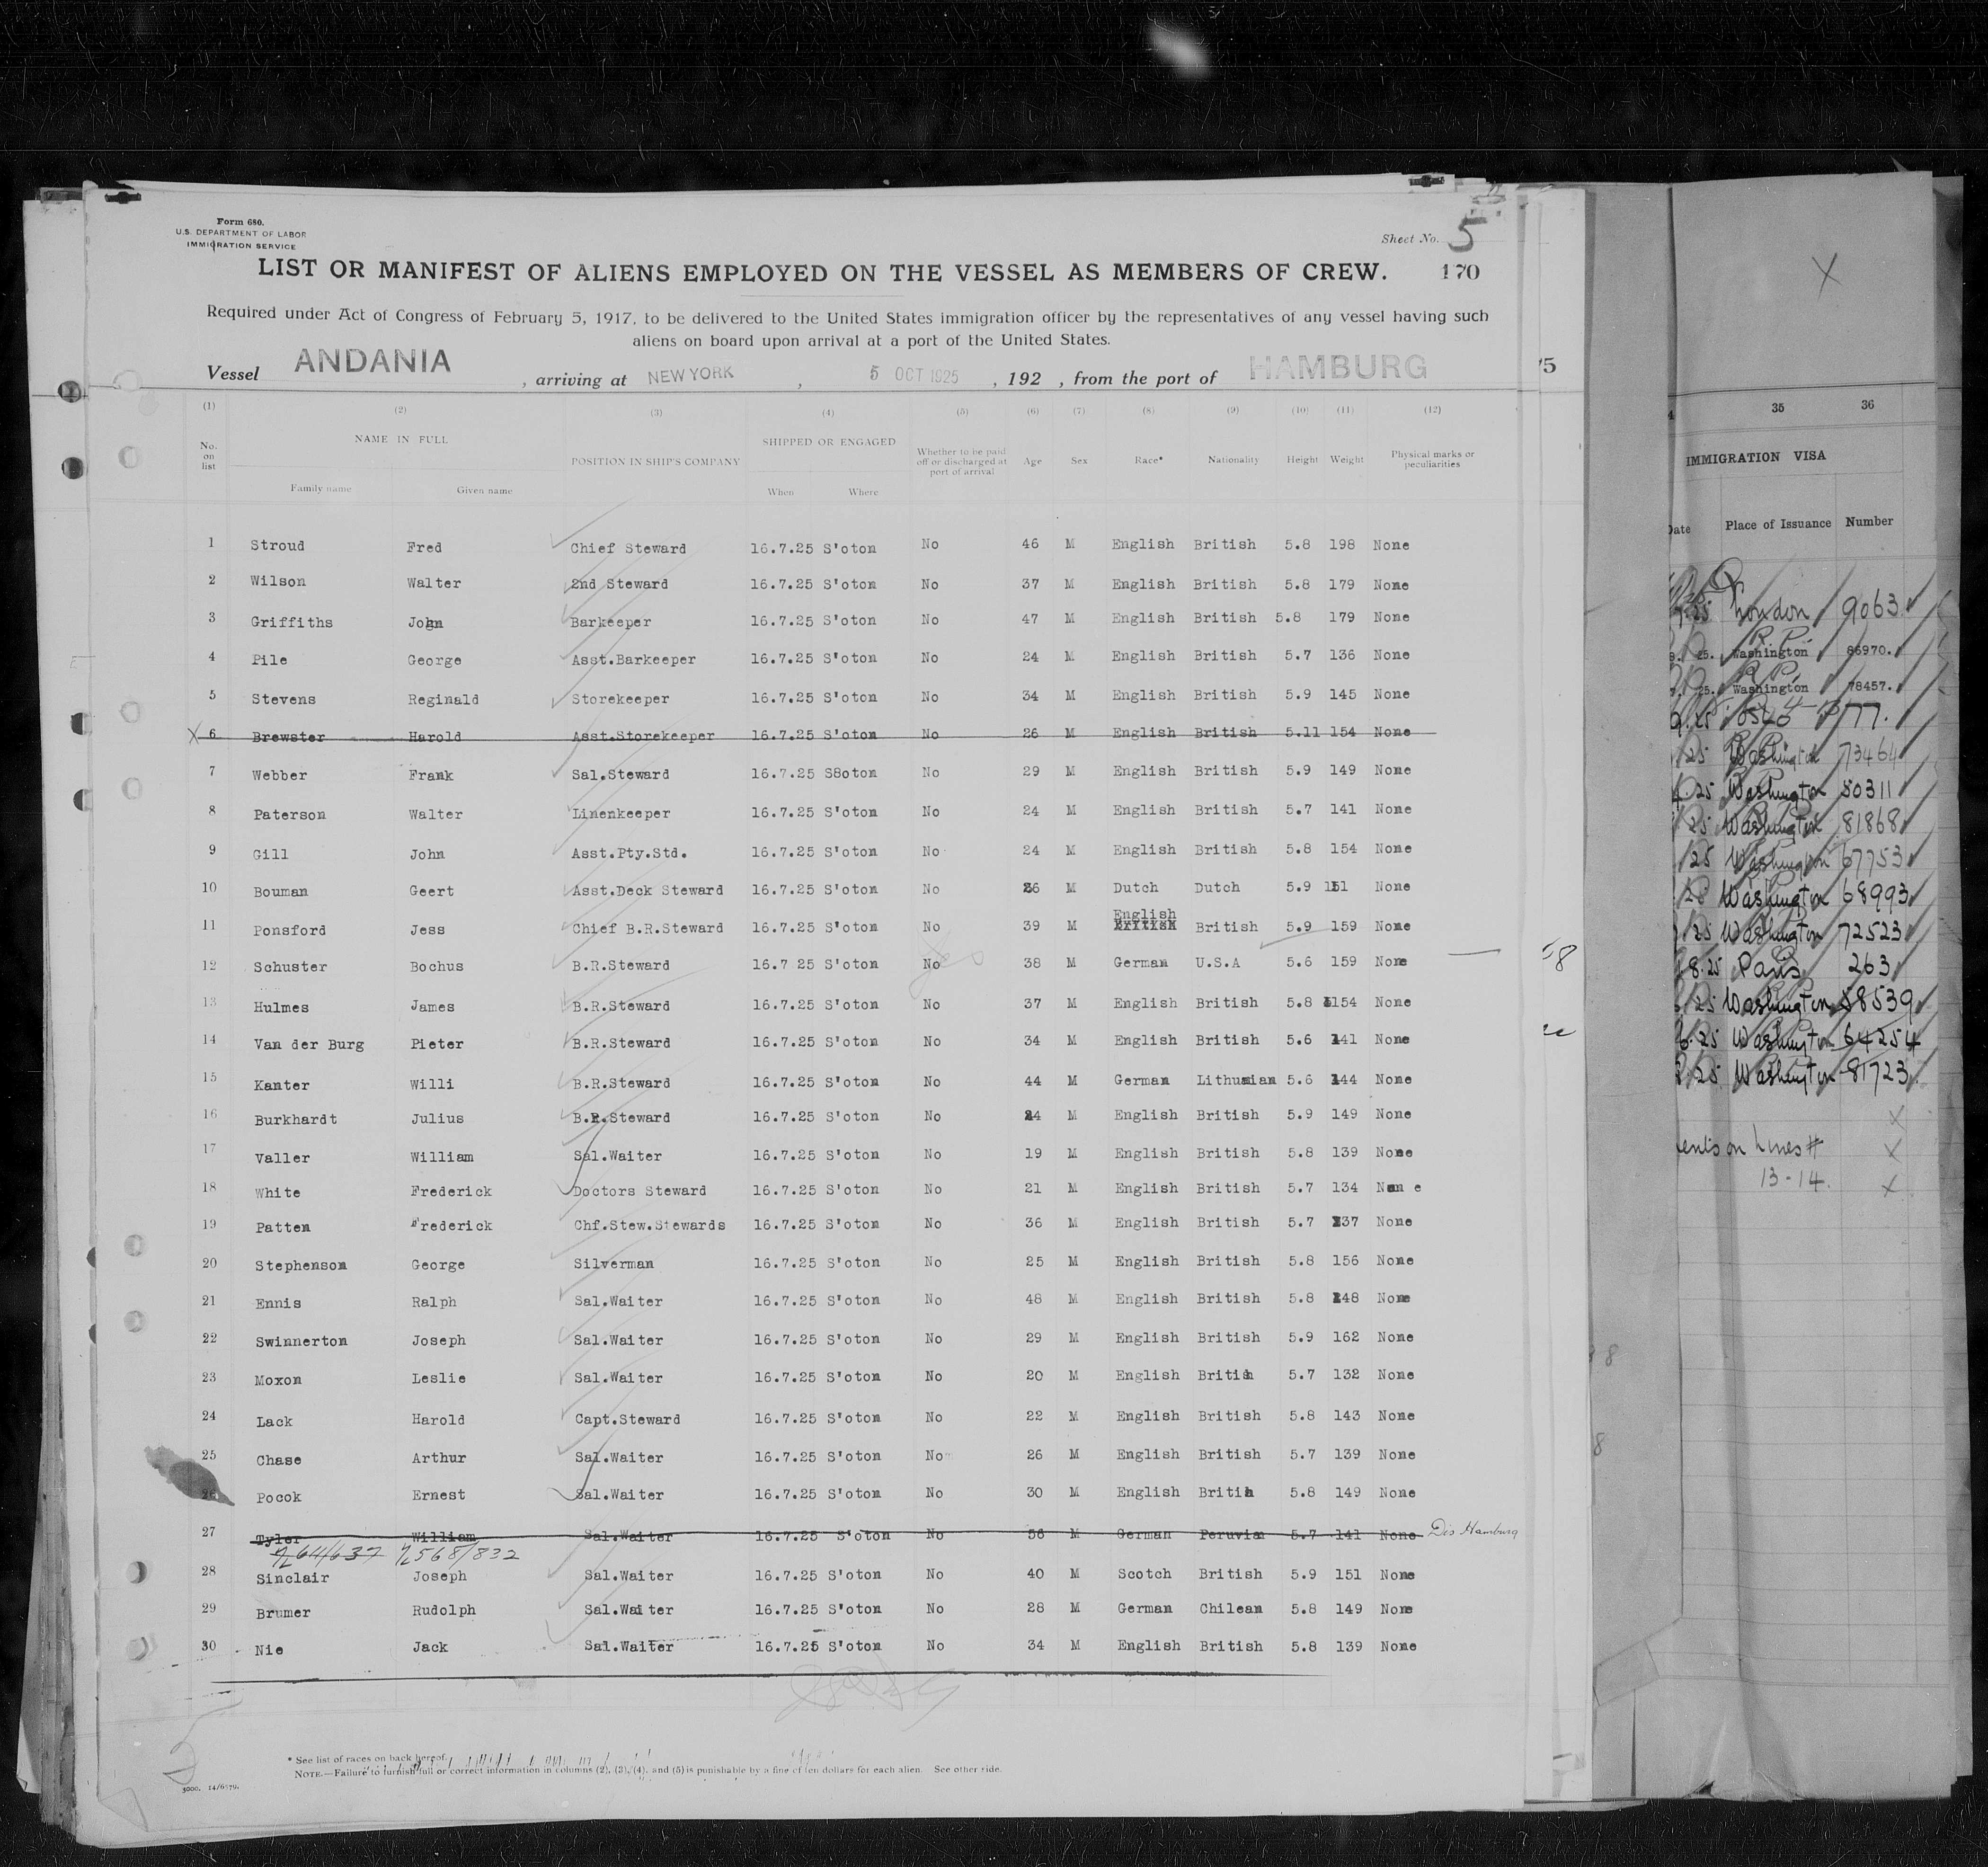 Form 680.
U.S. DEPARTMENT OF LABOR
IMMIGRATION SERVICE
Sheet No. 5
LIST OR MANIFEST OF ALIENS EMPLOYED ON THE VESSEL AS MEMBERS OF CREW. 170
Required under Act of Congress of February 5, 1917, to be delivered to the United States immigration officer by the representatives of any vessel having such
aliens on board upon arrival at a port of the United States.
Vessel ANDANIA , arriving at NEW YORK , 5 OCT 1925 , 192 , from the port of HAMBURG
(1) (2) (3) (4) (5) (6) (7) (8) (9) (10) (11) (12)
No. on list NAME IN FULL POSITION IN SHIP'S COMPANY SHIPPED OR ENGAGED Whether to be paid off or discharged at port of arrival Age Sex Race* Nationality Height Weight Physical marks or peculiarities
Family name Given name When Where
1 Stroud Fred Chief Steward 16.7.25 S'oton No 46 M English British 5.8 198 None
2 Wilson Walter 2nd Steward 16.7.25 S'oton No 37 M English British 5.8 179 None
3 Griffiths John Barkeeper 16.7.25 S'oton No 47 M English British 5.8 179 None
4 Pile George Asst.Barkeeper 16.7.25 S'oton No 24 M English British 5.7 136 None
5 Stevens Reginald Storekeeper 16.7.25 S'oton No 34 M English British 5.9 145 None
X 6 Brewster Harold Asst.Storekeeper 16.7.25 S'oton No 26 M English British 5.11 154 None
7 Webber Frank Sal.Steward 16.7.25 S8oton No 29 M English British 5.9 149 None
8 Paterson Walter Linenkeeper 16.7.25 S'oton No 24 M English British 5.7 141 None
9 Gill John Asst.Pty.Std. 16.7.25 S'oton No 24 M English British 5.8 154 None
10 Bouman Geert Asst.Deck Steward 16.7.25 S'oton No M Dutch Dutch 5.9 None
11 Ponsford Jess Chief B.R.Steward 16.7.25 S'oton No 39 M English British British 5.9 159 None
12 Schuster Bochus B.R.Steward 16.7 25 S'oton No 38 M German U.S.A 5.6 159 None
13 Hulmes James B.R.Steward 16.7.25 S'oton No 37 M English British 5.8 154 None
14 Van der Burg Pieter B.R.Steward 16.7.25 S'oton No 34 M English British 5.6 141 None
15 Kanter Willi B.R.Steward 16.7.25 S'oton No 44 M German Lithunian 5.6 144 None
16 Burkhardt Julius B.R.Steward 16.7.25 S'oton No 24 M English British 5.9 149 None
17 Valler William Sal.Waiter 16.7.25 S'oton No 19 M English British 5.8 139 None
18 White Frederick Doctors Steward 16.7.25 S'oton No 21 M English British 5.7 134 Non e
19 Patten Frederick Chf.Stew.Stewards 16.7.25 S'oton No 36 M English British 5.7 137 None
20 Stephenson George Silverman 16.7.25 S'oton No 25 M English British 5.8 156 None
21 Ennis Ralph Sal.Waiter 16.7.25 S'oton No 48 M English British 5.8 148 None
22 Swinnerton Joseph Sal.Waiter 16.7.25 S'oton No 29 M English British 5.9 162 None
23 Moxon Leslie Sal.Waiter 16.7.25 S'oton No 20 M English Britih 5.7 132 None
24 Lack Harold Capt.Steward 16.7.25 S'oton No 22 M English British 5.8 143 None
25 Chase Arthur Sal.Waiter 16.7.25 S'oton No 26 M English British 5.7 139 None
26 Pocok Ernest Sal.Waiter 16.7.25 S'oton No 30 M English Britih 5.8 149 None
27 Tyler William Sal.Waiter 16.7.25 S'oton No 56 M German Peruvian 5.7 141 None Dis Hamburg
28 Sinclair Joseph Sal.Waiter 16.7.25 S'oton No 40 M Scotch British 5.9 151 None
29 Brumer Rudolph Sal.Waiter 16.7.25 S'oton No 28 M German Chilean 5.8 149 None
30 Nie Jack Sal.Waiter 16.7.25 S'oton No 34 M English British 5.8 139 None
* See list of races on back hereof.
NOTE.—Failure to furnish full or correct information in columns (2), (3), (4), and (5) is punishable by a fine of ten dollars for each alien. See other side.
X
35 36
IMMIGRATION VISA
Date Place of Issuance Number
London 9063
25. Washington 86970.
25. Washington 78457.
25 Oslo 777.
25 Washington 73464
25 Washington 80311
25 Washington 81868
25 Washington 67753
Washington 68993
25 Washington 72523
8.25 Paris 263
25 Washington 58539
25 Washington 64254
25 Washington 81723
on Lines #
13-14.